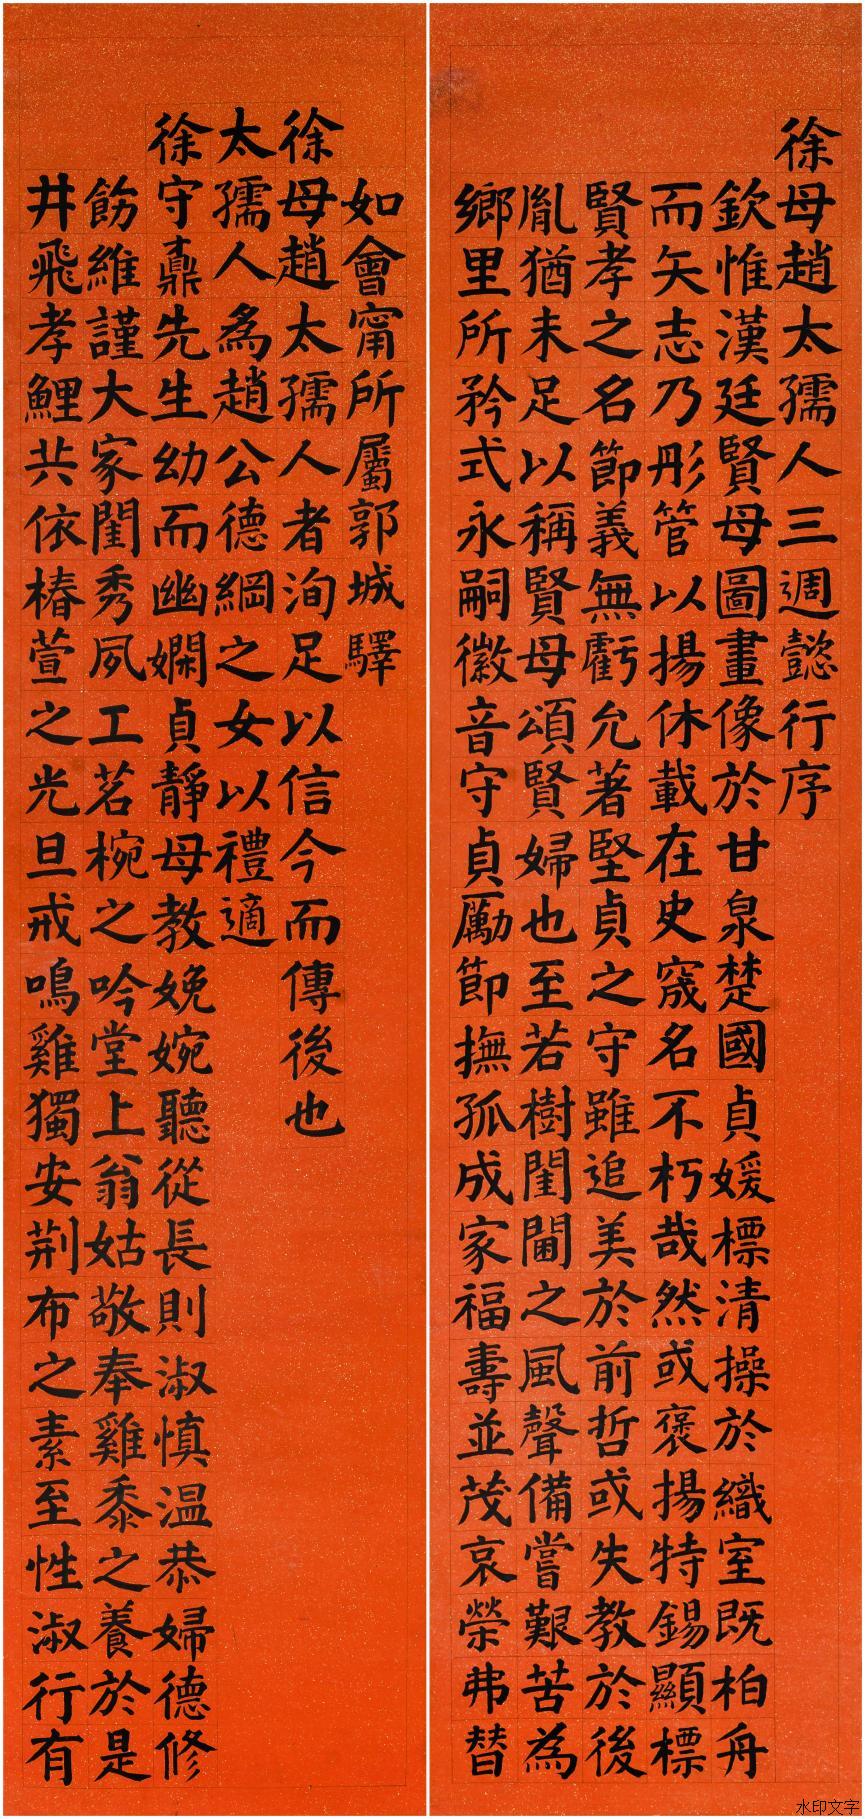 徐母趙太孺人三週懿行序
欽惟漢廷賢母圖畫像於甘泉楚國貞媛標清操於織室既柏舟
而矢志乃彤管以揚休載在史宬名不朽哉然或褒揚特錫顯標
賢孝之名節義無虧允著堅貞之守雖追美於前哲或失教於後
胤猶未足以稱賢母頌賢婦也至若樹閨閫之風聲備嘗艱苦為
鄉里所矜式永嗣徽音守貞勵節撫孤成家福壽並茂哀榮弗替
如會甯所屬郭城驛
徐母趙太孺人者洵足以信今而傳後也
太孺人為趙公德綱之女以禮適
徐守鼒先生幼而幽嫻貞靜母教娩婉聽從長則淑慎温恭婦德修
飭維謹大家閨秀夙工茗椀之吟堂上翁姑敬奉雞黍之養於是
井飛孝鯉共依椿萱之光旦戒鳴雞獨安荆布之素至性淑行有
水印文字